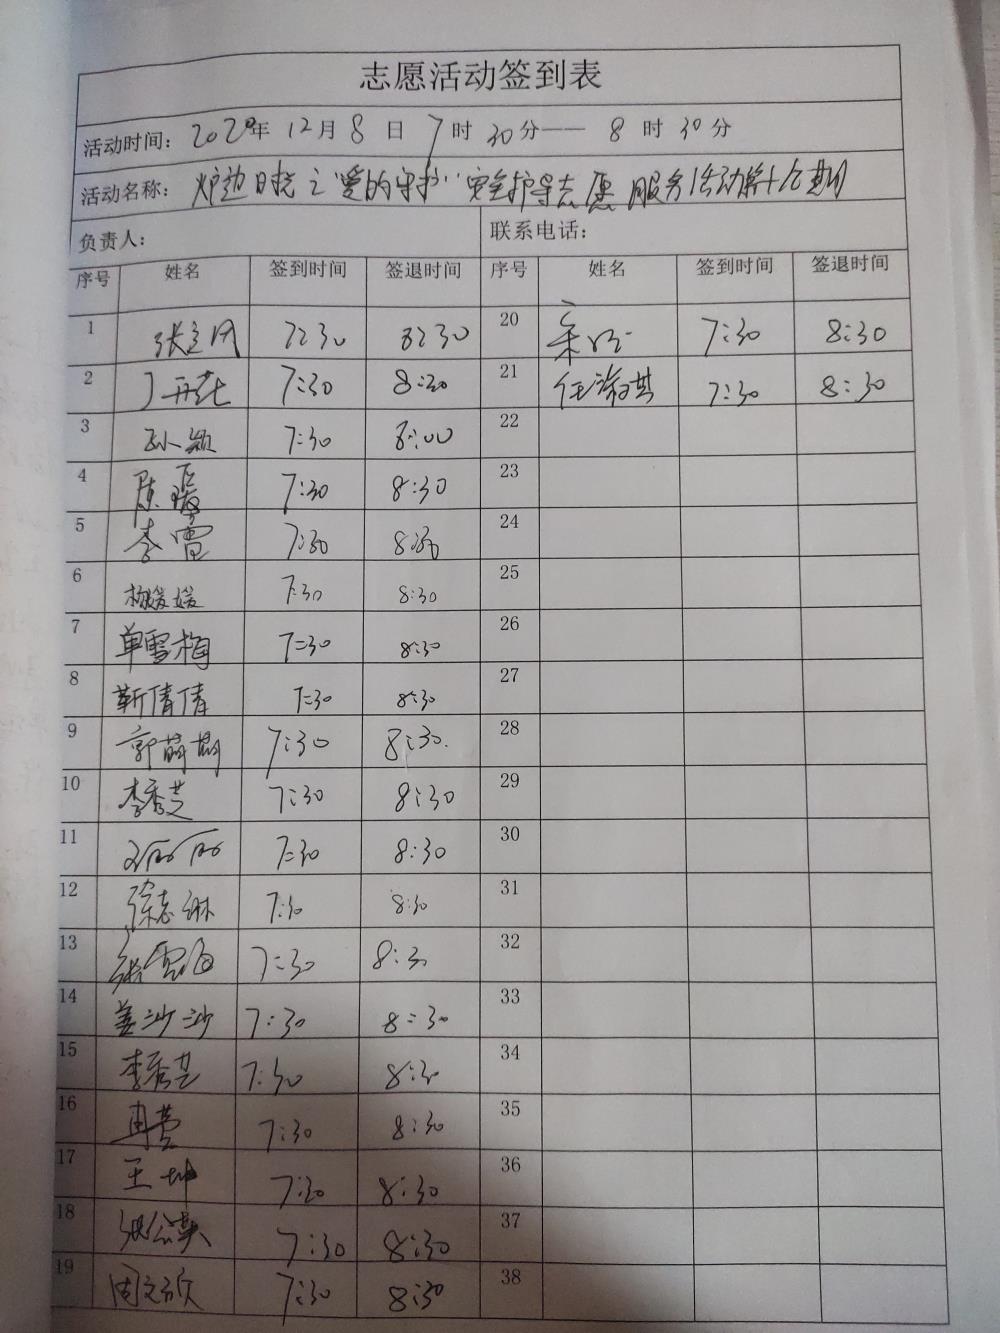 志愿活动签到表
活动时间: 2020年 12月 8 日 7 时 30分—— 8 时 30分
活动名称: 炉边日志之"爱的守护"安全护导志愿服务活动第十 期
负责人: 联系电话:
序号 姓名 签到时间 签退时间 序号 姓名 签到时间 签退时间
1 7:30 8:30 20 7:30 8:30
2 7:30 8:30 21 任淑琪 7:30 8:30
3 孙颖 7:30 8:00 22
4 陈瑗 7:30 8:30 23
5 李雪 7:30 8:30 24
6 杨媛媛 7:30 8:30 25
7 单雪梅 7:30 8:30 26
8 靳倩倩 7:30 8:30 27
9 郭萌萌 7:30 8:30. 28
10 李秀芝 7:30 8:30 29
11 7:30 8:30 30
12 徐志琳 7:30 8:30 31
13 张雪海 7:30 8:3 32
14 姜沙沙 7:30 8:30 33
15 李秀芝 7:30 8:30 34
16 冉营 7:30 8:30 35
17 王坤 7:30 8:30 36
18 7:30 8:30 37
19 周文欣 7:30 8:30 38